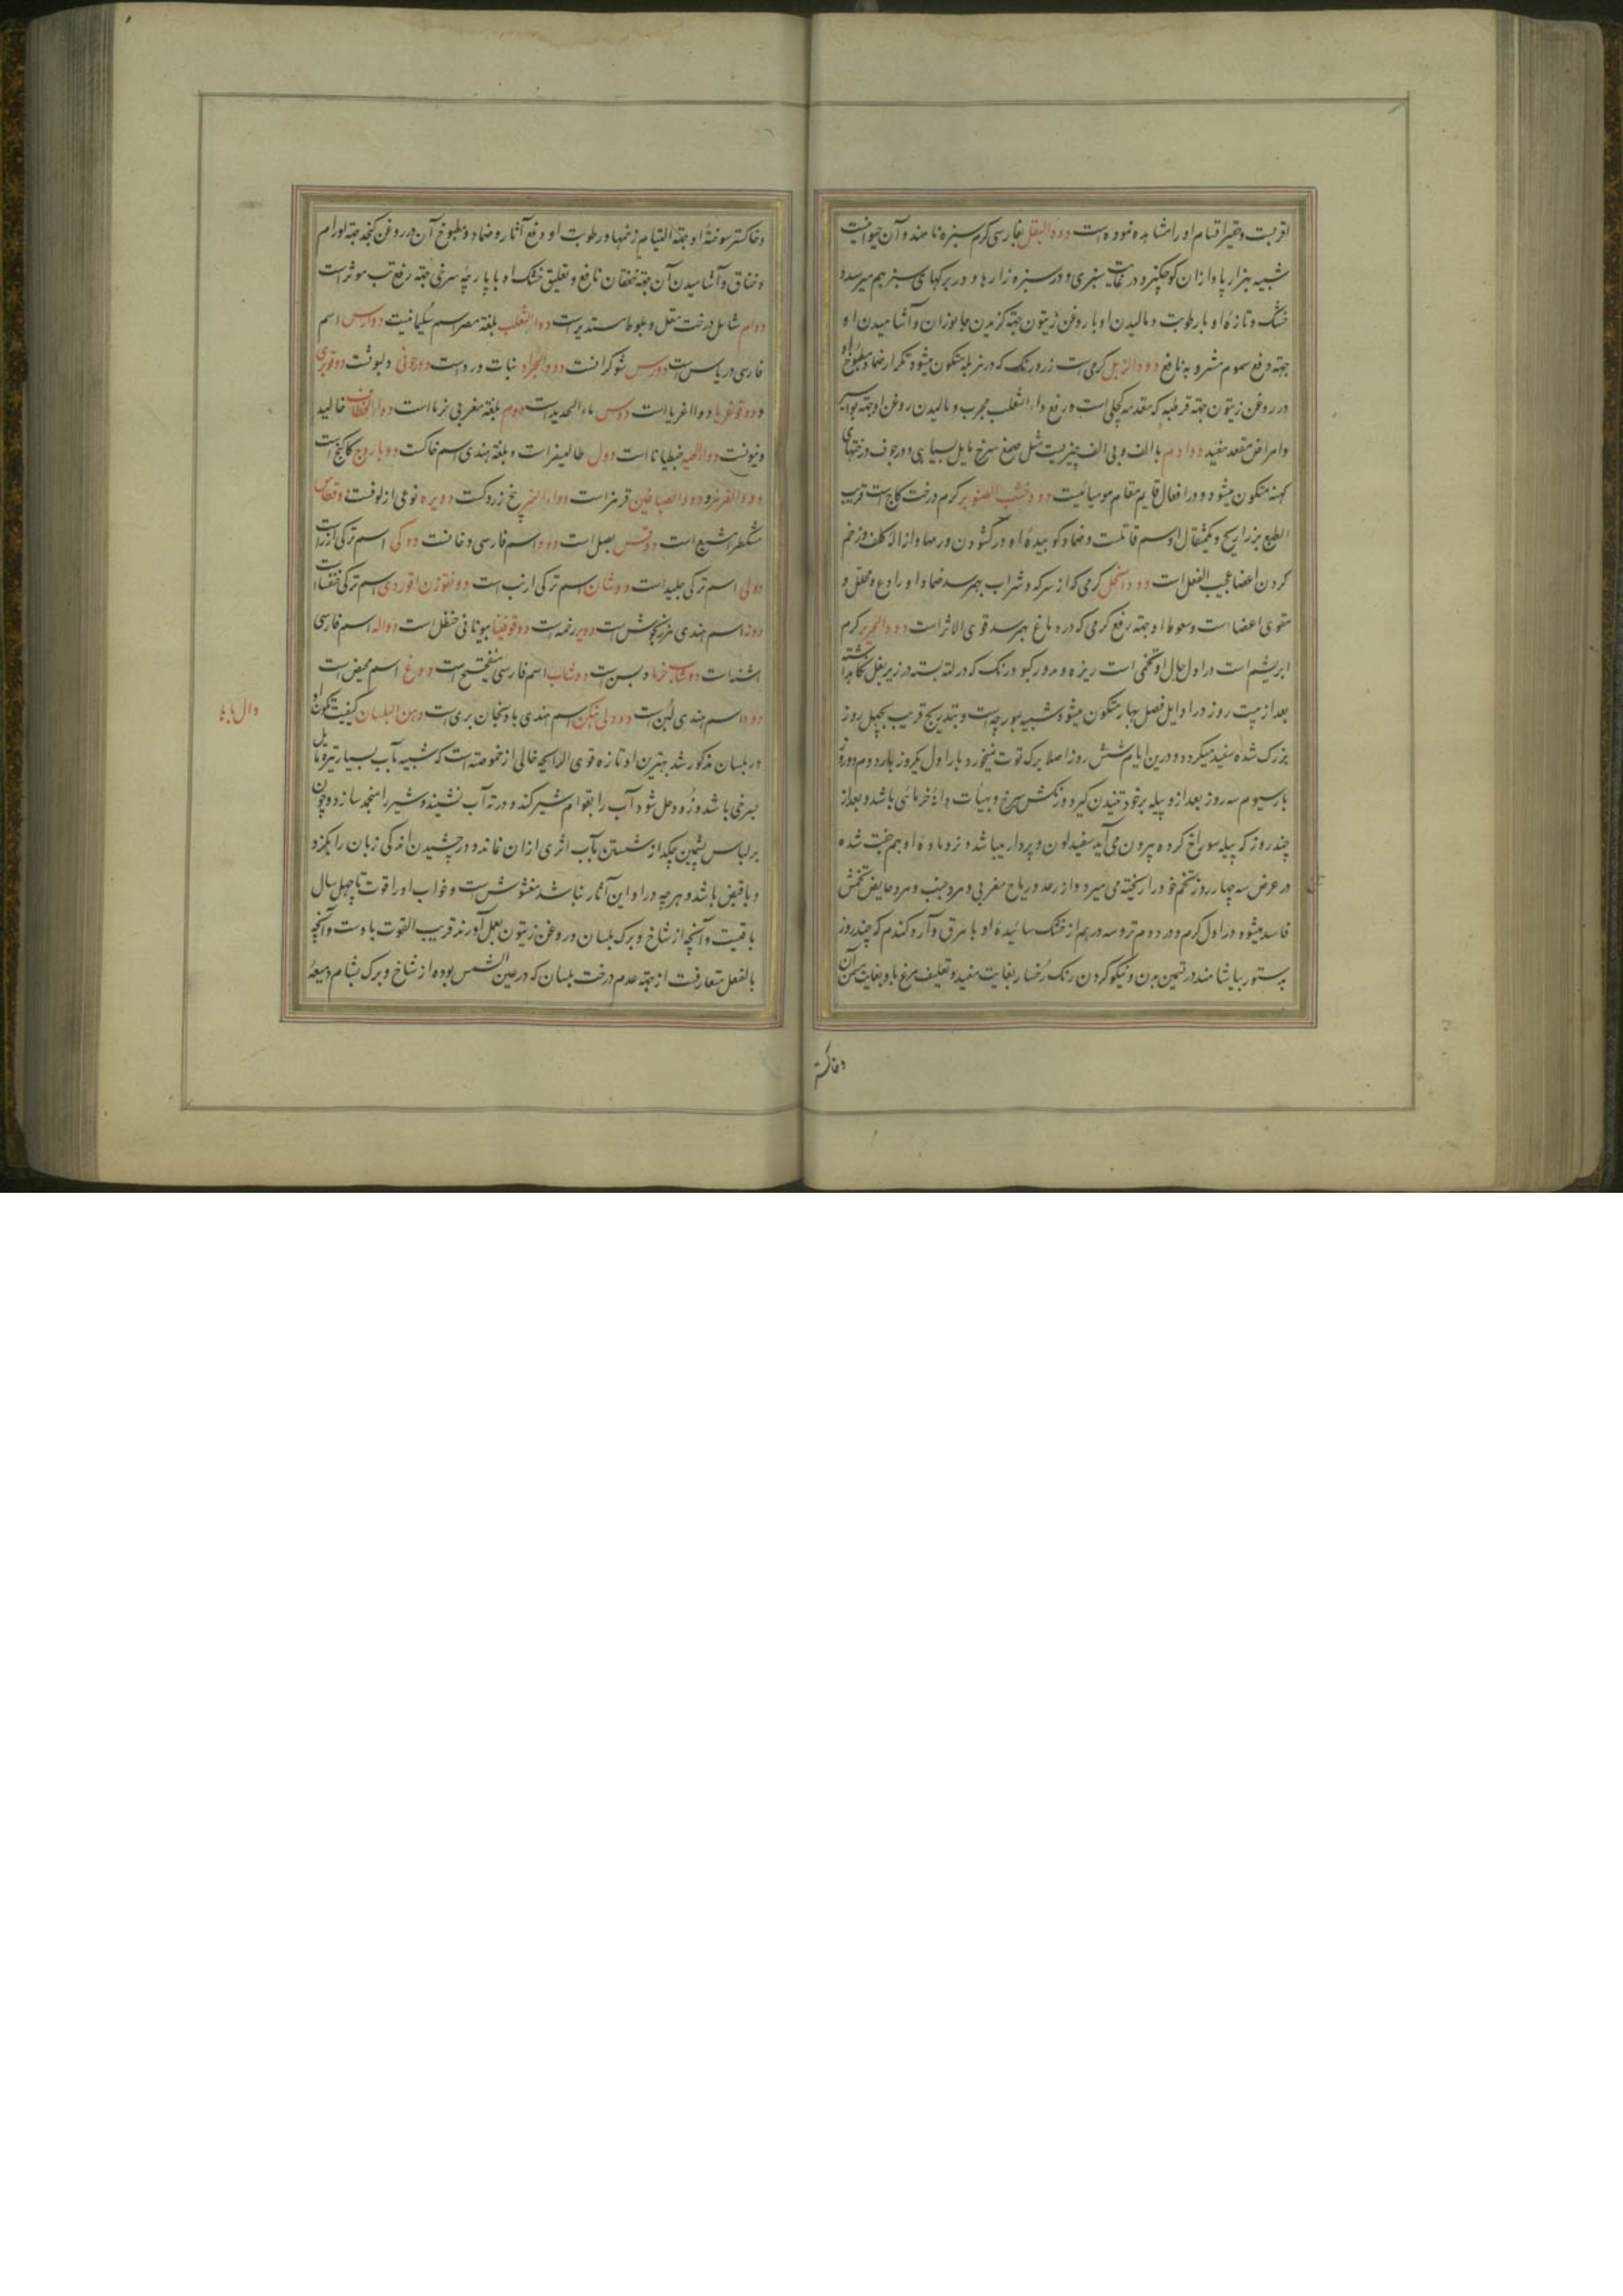 اقربست و حقیر اقسام او را مشاهده نموده است دود البقل بفارسی کرم سبزه نامند و آن حیوانیست
شبیه بهزارپا و از آن کوچکتر و در غایت سبزی و در سبزه زارها و در برکهای سبز بهم میرسد و
خشک و تازه او با رطوبت و مالیدن او با روغن زیتون جهته کزیدن جانوران و آشامیدن او
جهته دفع سموم مشروبه نافع دود الزبل کرمی است زرد رنک که در مزبله متکون میشود تکرار ضماد مطبوخ او
در روغن زیتون جهته قرطبه که مقدمه کچلی است و رفع داء الثعلب مجرب و مالیدن روغن او جهته بواسیر
و امراض مقعد مفید دوادم با الف و بی الف چیزیست مثل صمغ سرخ مایل بسیاهی و در جوف درختهای
کهنه متکون میشود و در افعال قایم مقام مومیائیست دود خشب الصنوبر کرم درخت کاج است قریب
الطبع بزراریح و یکمثقال او سم قاتلست و ضماد کوبیده او در کشودن ورمها و ازاله کلف و زخم
کردن اعضا عجیب الفعل است دود الخل کرمی که از سرکه و شراب بهم رسد ضماد او رادع و محلل و
مقوی اعضا است و سعوط او جهته رفع کرمی که در دماغ بهم رسد قوی الاثر است دود الحریر کرم
ابریشم است در اول حال او تخمی است ریزه و مدور کبود رنک که در لته بسته در زیر بغل نکاهداشته
بعد از بیست روز در اوایل فصل بهار متکون میشود شبیه بمورچه است و بتدریج قریب بچهل روز
بزرک شده سفید میکردد و درین ایام شش روز اصلا برک توت نمیخورد بار اول یکروز بار دوم دو روز
بار سیوم سه روز بعد از و پیله بر خود تنیدن کیرد و رنکش سرخ و بهیات دانه خرمائی باشد و بعد از
چند روز که پیله سوراخ کرده بیرون می آید سفید لون و پردار میباشد و نر و ماده او بهم جفت شده
در عرض سه چهار روز تخم خود را ریخته می میرد و از رعد و ریاح مغربی و مرد جنب و مرد حایض تخمش
فاسد میشود در اول کرم و در دوم تر و سه درهم از خشک سائیده او با مرق و آرد کندم که چند روز
بدستور بیاشامند در تسمین بدن و نیکو کردن رنک رخسار بغایت مفید و تعلیف مرغ با او بغایت مسمن آن
و خاکستر
و خاکستر سوخته او جهته التیام زخمها و رطوبت او و رفع آثار و ضماد و مطبوخ آن در روغن کنجد جهته اورام
و خناق و آشامیدن آن جهته خفقان نافع و تعلیق خشک او با پارچه سرخی جهته رفع تب موثر است
دوام شامل درخت مقل و بلوط مستدیر است دوا الثعلب بلغة مصر اسم سکیمانیست دوارس اسم
فارسی دریاس است دورس شوکرانست دود الجراد نبات ورد است دورجونی دلبوثست دوقویری
و دوقوغریا و والغریا است دوس ماء الحدید است دوم بلغة مغربی خرما است دواء الخطاف خالید
ونیونست دواء الحیه جنطیانا است دول طالیسفر است و بلغة هندی اسم خاکست دوباروج کاکنج است
دود القرمز و دود الصباغین قرمز است دواء البر بیخ زردکست دویره نوعی از لوفست دوقطاس
مشکطرامشیع است دوقس بصل است دود اسم فارسی دخانست دوکی اسم ترکی ارز است
دولی اسم ترکی جلید است دوشان اسم ترکی ارنب است دونقوزن اقوردی اسم ترکی خنفسا است
دونه اسم هندی مرزنکوش است دویر رغمه است دوقوفینا بیونانی حنظل است دواله اسم فارسی
اشنه است دوشاب خرما دبس است دوشاب اسم فارسی میفختج است دوغ اسم مخیض است
دودا اسم هندی لبن است دودلی بنکن اسم هندی بادنجان بری است دهن البلسان کیفیت تکون او
در بلسان مذکور شد بهترین او تازه قوی الرایحه خالی از غموضته است که شبیه بآب بسیار تیره مایل
بسرخی باشد و زود حل شود آب را بقوام شیر کند و در ته آب نشیند و شیر را منجمد سازد و چون
بر لباس پشمین چکد از شستن بآب اثری از آن نماند و در چشیدن اندکی زبان را بکزد
و با قبض باشد و هرچه در او این آثار نباشد مغشوش است و خواب او را قوت تا چهل سال
باقیست و آنچه از شاخ و برک بلسان در روغن زیتون بعمل آورند قریب القوت بادست و آنچه
بالفعل متعارفست از جهته عدم درخت بلسان که در عین الشمس بوده از شاخ و برک بشام و میعه
دال با ها